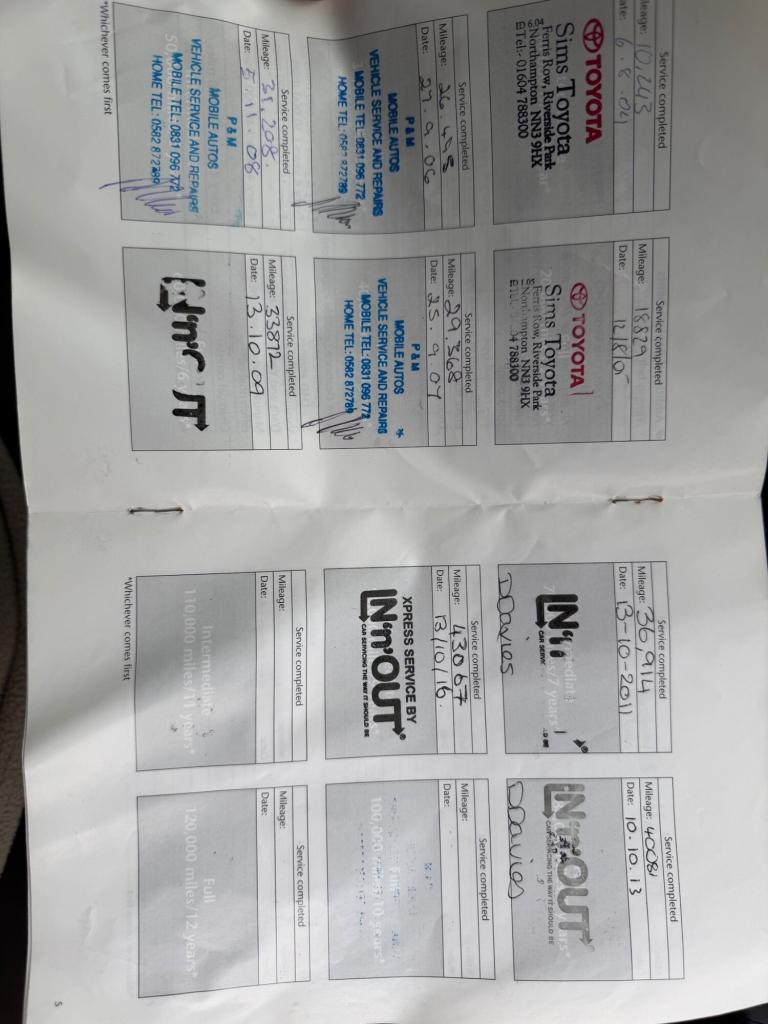 Service completed
Mileage: 10,243
Date: 6.8.04
TOYOTA
Sims Toyota
Ferris Row, Riverside Park
Northampton NN3 9HX
Tel: 01604 788300
Service completed
Mileage: 18829
Date: 12/8/05
TOYOTA
Sims Toyota
Ferris Row, Riverside Park
Northampton NN3 9HX
788300
Service completed
Mileage: 26.495
Date: 27.9.06
P & M
MOBILE AUTOS
VEHICLE SERVICE AND REPAIRS
MOBILE TEL: 0831 096 772
HOME TEL: 0582 872789
Service completed
Mileage: 29,368
Date: 25.9.07
P & M
MOBILE AUTOS
VEHICLE SERVICE AND REPAIRS
MOBILE TEL: 0831 096 772
HOME TEL: 0582 872789
Service completed
Mileage: 31,208.
Date: 5.11.08
P & M
MOBILE AUTOS
VEHICLE SERVICE AND REPAIRS
MOBILE TEL: 0831 096 772
HOME TEL: 0582 872789
Service completed
Mileage: 33872
Date: 13.10.09
*Whichever comes first
Service completed
Mileage: 36,914
Date: 13-10-2011
IN'n
CAR SERVIC
D Davies
Service completed
Mileage: 40081
Date: 10.10.13
IN'n'OUT
CAR SERVICING THE WAY IT SHOULD BE
D Davies
Service completed
Mileage: 43067
Date: 13/10/16.
XPRESS SERVICE BY
IN'n'OUT
CAR SERVICING THE WAY IT SHOULD BE
Service completed
Mileage:
Date:
100,000 miles/10 years*
Service completed
Mileage:
Date:
Intermediate
110,000 miles/11 years*
Service completed
Mileage:
Date:
Full
120,000 miles/12 years*
*Whichever comes first
5